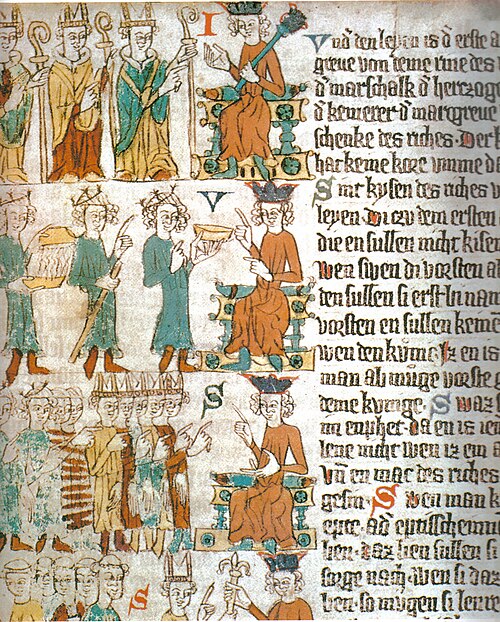 I
Vnd' den leyen is d' erste a
greue von deme rine des
d' marschalk d' herczoge
d' kemerer d' margreue
schenke des riches. Der k
hat keine kore vmme d
V
Sint kysen des riches v
leyen. Di czv dem ersten
die en sullen nicht kisen
wen swen di vorsten al
den sullen si erst bi nam
vorsten en sullen keine
wen den kvnig. Iz en is
man ab muge vorste
S
deme kvnige. Swaz s
nen enphet. da en is ien
lene nicht wen iz ein a
vn en mac des riches
gesin. Swen man k
epte. ad'
lien. daz lien sullen si
nach. wen si daz
S
ben. so mvgen si lenre